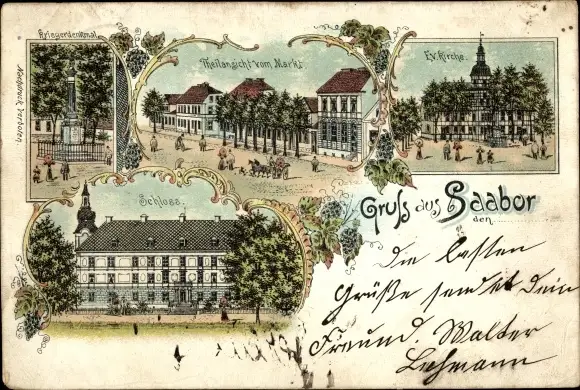 Kriegerdenkmal
Nachdruck verboten.
Theilansicht vom Markt
Ev. Kirche.
Schloss.
Gruss aus Saabor
den
Die besten
Grüße sendet Dein
Freund. Walter
Lehmann